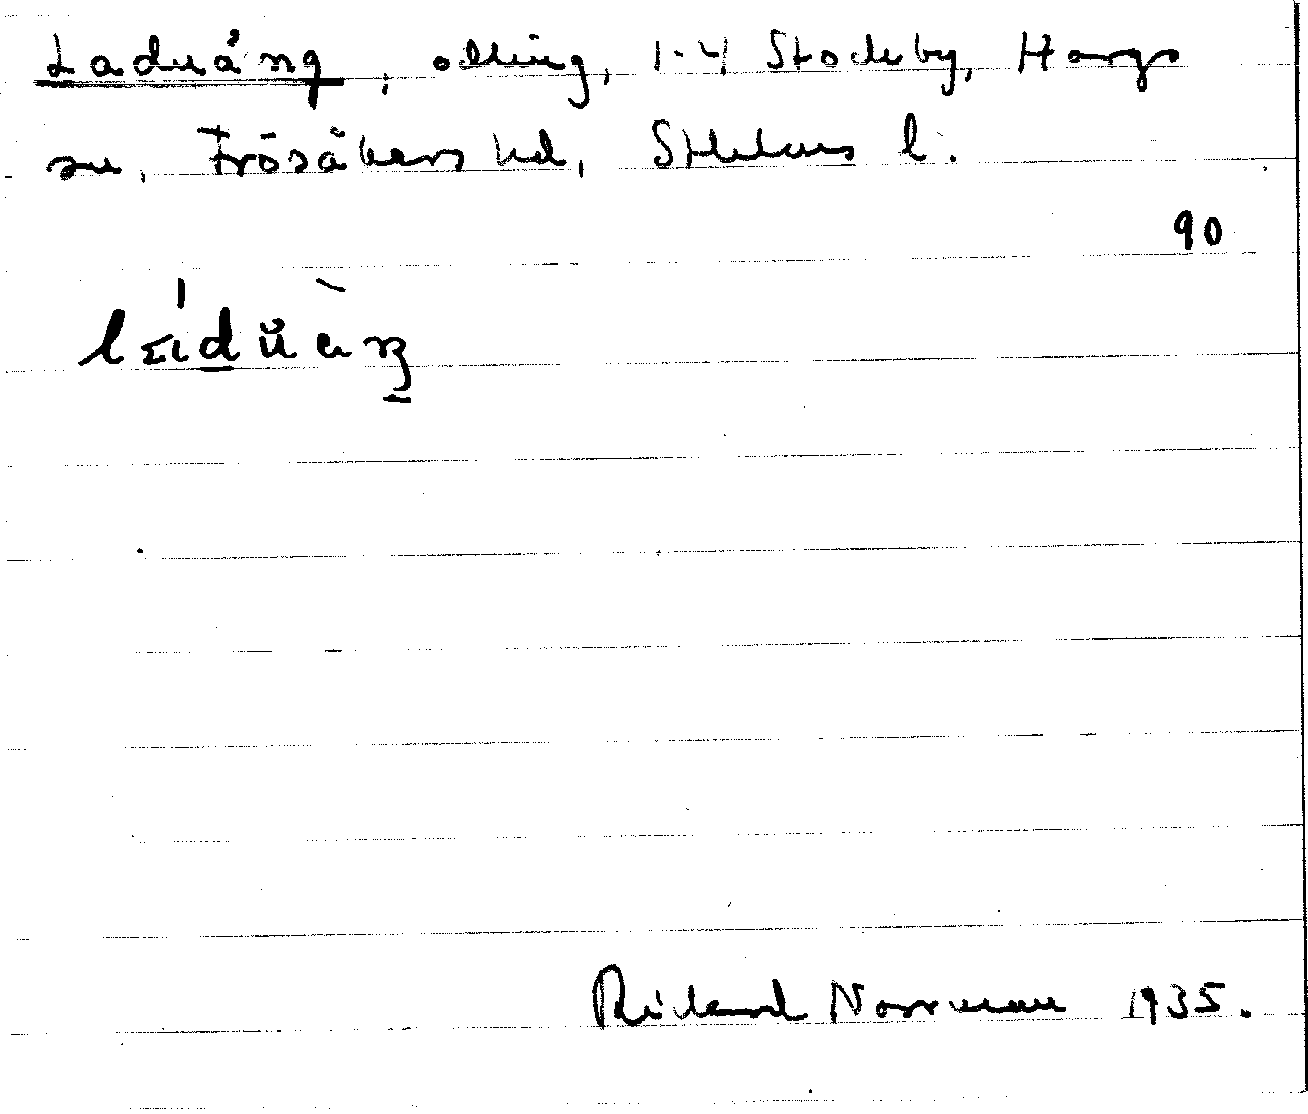 Laduäng, olläng, 1-4 Stockby, Hargs
sn, Frösåkers hd, Sthlms l.
90
Rickard Norrman 1935.